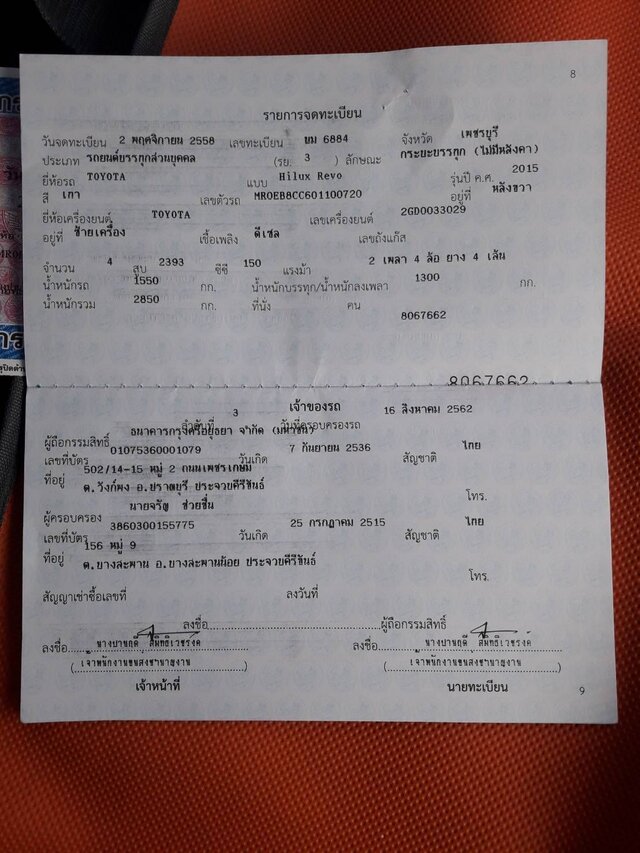 8
รายการจดทะเบียน
วันจดทะเบียน 2 พฤศจิกายน 2558 เลขทะเบียน บม 6884 จังหวัด เพชรบุรี
ประเภท รถยนต์บรรทุกส่วนบุคคล (รย. 3 ) ลักษณะ กระบะบรรทุก (ไม่มีหลังคา)
ยี่ห้อรถ TOYOTA แบบ Hilux Revo รุ่นปี ค.ศ. 2015
สี เทา เลขตัวรถ MR0EB8CC601100720 อยู่ที่ หลังขวา
ยี่ห้อเครื่องยนต์ TOYOTA เลขเครื่องยนต์ 2GD0033029
อยู่ที่ ซ้ายเครื่อง เชื้อเพลิง ดีเซล เลขถังแก๊ส
จำนวน 4 สูบ 2393 ซีซี 150 แรงม้า 2 เพลา 4 ล้อ ยาง 4 เส้น
น้ำหนักรถ 1550 กก. น้ำหนักบรรทุก/น้ำหนักลงเพลา 1300 กก.
น้ำหนักรวม 2850 กก. ที่นั่ง คน
8067662
8067662
เจ้าของรถ
ลำดับที่ 3 วันที่ครอบครองรถ 16 สิงหาคม 2562
ผู้ถือกรรมสิทธิ์ ธนาคารกรุงศรีอยุธยา จำกัด (มหาชน)
เลขที่บัตร 0107536001079 วันเกิด 7 กันยายน 2536 สัญชาติ ไทย
ที่อยู่ 502/14-15 หมู่ 2 ถนนเพชรเกษม
ต.วังก์พง อ.ปราณบุรี ประจวบคีรีขันธ์ โทร.
ผู้ครอบครอง นายจรัญ ช่วยชื่น
เลขที่บัตร 3860300155775 วันเกิด 25 กรกฎาคม 2515 สัญชาติ ไทย
ที่อยู่ 156 หมู่ 9
ต.บางสะพาน อ.บางสะพานน้อย ประจวบคีรีขันธ์ โทร.
สัญญาเช่าซื้อเลขที่ ลงวันที่
ลงชื่อ ผู้ถือกรรมสิทธิ์
ลงชื่อ ลงชื่อ
(เจ้าพนักงานขนส่งชำนาญงาน) (เจ้าพนักงานขนส่งชำนาญงาน)
เจ้าหน้าที่ นายทะเบียน
9